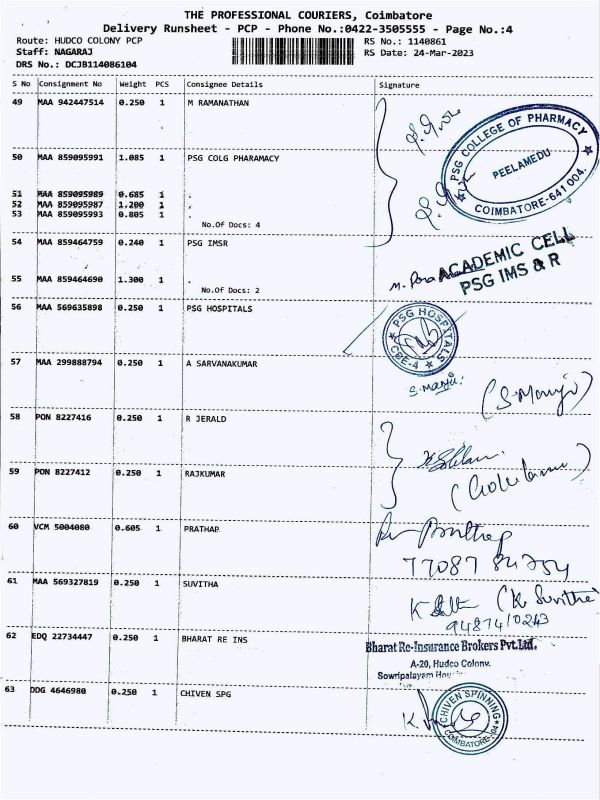 THE PROFESSIONAL COURIERS, Coimbatore
Delivery Runsheet - PCP - Phone No.:0422-3505555 - Page No.:4
Route: HUDCO COLONY PCP RS No.: 1140861
Staff: NAGARAJ RS Date: 24-Mar-2023
DRS No.: DCJB114086104
S No Consignment No Weight PCS Consignee Details Signature
49 MAA 942447514 0.250 1 M RAMANATHAN
50 MAA 859095991 1.085 1 PSG COLG PHARAMACY
PSG COLLEGE OF PHARMACY
PEELAMEDU
COIMBATORE-641 004.
51 MAA 859095989 0.685 1 .
52 MAA 859095987 1.200 1 .
53 MAA 859095993 0.805 1 .
No.Of Docs: 4
54 MAA 859464759 0.240 1 PSG IMSR
ACADEMIC CELL
PSG IMS & R
55 MAA 859464690 1.300 1 .
No.Of Docs: 2
56 MAA 569635898 0.250 1 PSG HOSPITALS
PSG HOSPITALS
CBE-4
57 MAA 299888794 0.250 1 A SARVANAKUMAR
S.Manju.
(S.Manju)
58 PON 8227416 0.250 1 R JERALD
59 PON 8227412 0.250 1 RAJKUMAR
60 VCM 5004080 0.605 1 PRATHAP
Prathap
77087 84754
61 MAA 569327819 0.250 1 SUVITHA
(K Suvitha
9487410243
62 EDQ 22734447 0.250 1 BHARAT RE INS
Bharat Re-Insurance Brokers Pvt.Ltd.
A-20, Hudco Colony.
Sowripalayam
63 DDG 4646980 0.250 1 CHIVEN SPG
CHIVEN SPINNING
COIMBATORE-04